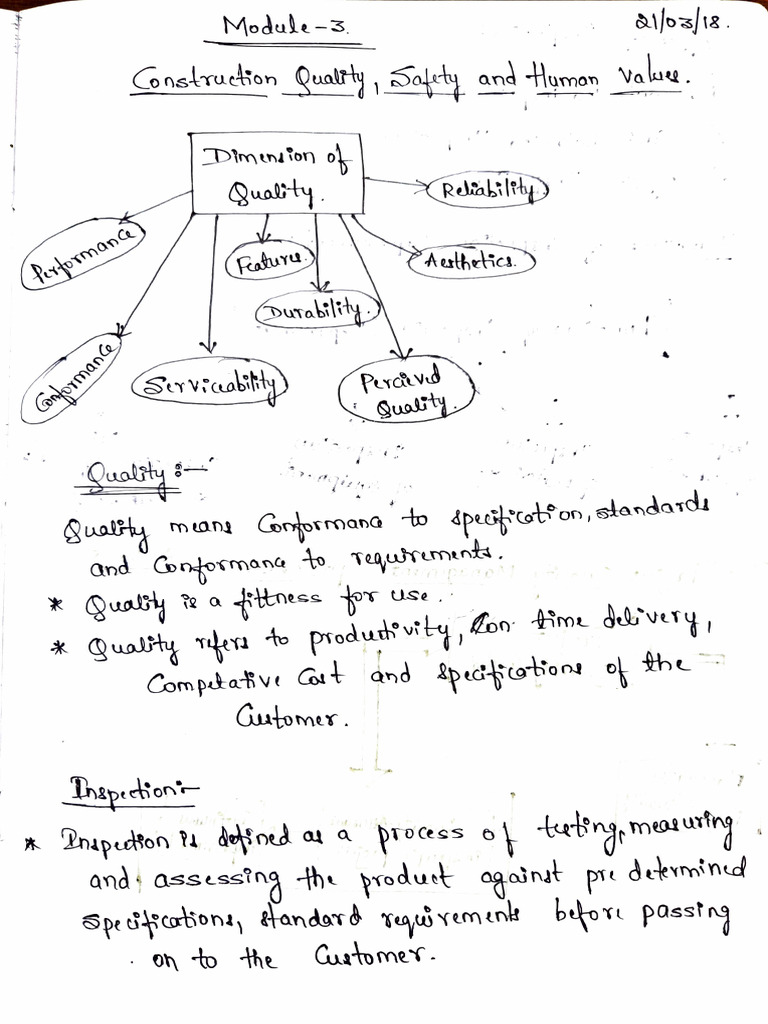 Module-3.
21/03/18.
Construction Quality, Safety and Human Values.
Dimension of
Quality.
Reliability
Performance
Features.
Aesthetics.
Durability.
Conformance
Serviceability
Percieved
Quality.
Quality :-
Quality means Conformance to specification, standards
and Conformance to requirements.
* Quality is a fittness for use.
* Quality refers to productivity, on time delivery,
Competative Cost and specifications of the
Customer.
Inspection:-
* Inspection is defined as a process of testing, measuring
and assessing the product against pre determined
specifications, standard requirements before passing
on to the Customer.